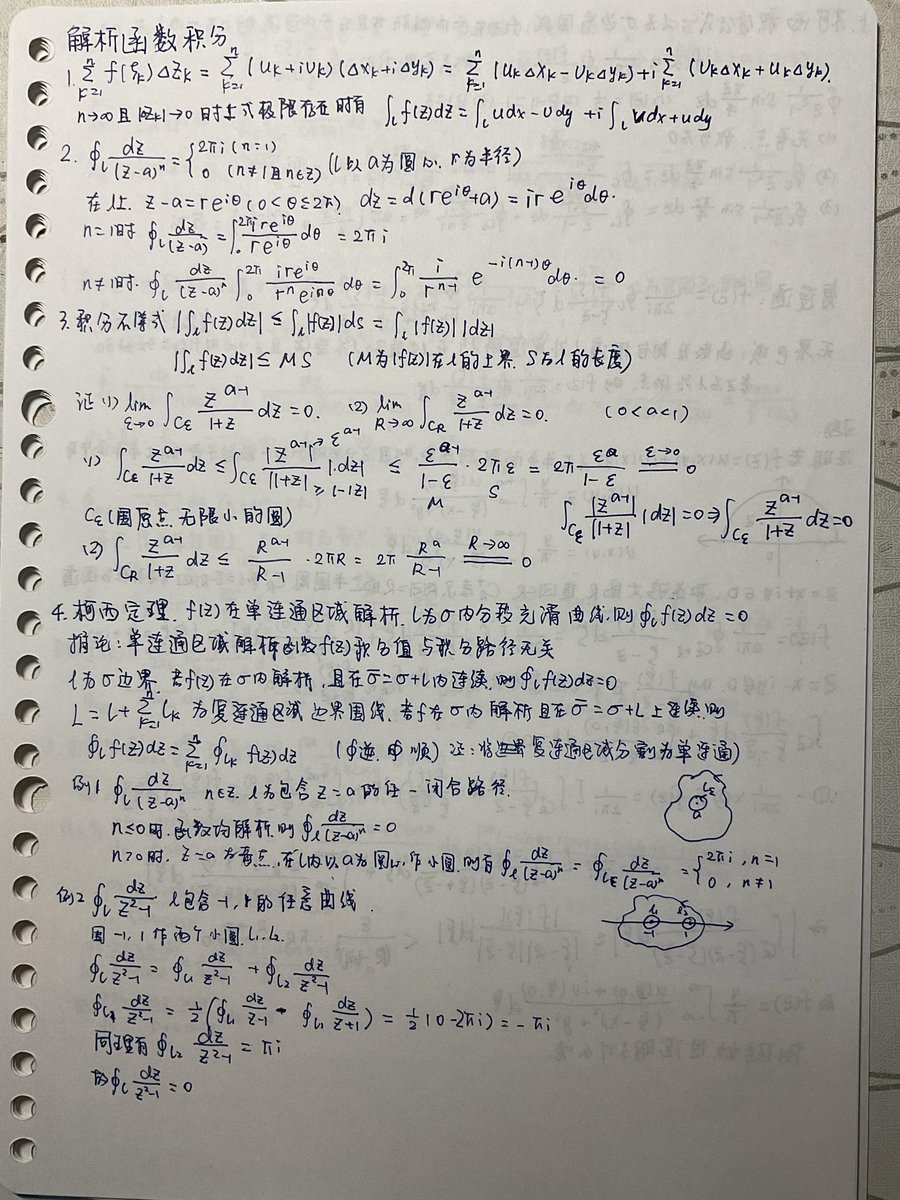 解析函数积分
1. \sum_{k=1}^{n} f(ξ_k) Δz_k = \sum_{k=1}^{n} (u_k+iv_k)(Δx_k+iΔy_k) = \sum_{k=1}^{n} (u_kΔx_k-v_kΔy_k)+i\sum_{k=1}^{n} (v_kΔx_k+u_kΔy_k).
n→∞ 且 →0 时上式极限存在时有 ∫_l f(z)dz = ∫_l udx-vdy +i∫_l vdx+udy
2. ∮_l \frac{dz}{(z-a)^n} = { 2πi (n=1) 0 (n≠1且n∈Z) (l以a为圆心, r为半径)
在l上. z-a=re^{iθ} (0<θ≤2π) dz=d(re^{iθ}+a) = ire^{iθ}dθ.
n=1时 ∮_l \frac{dz}{(z-a)} = ∫_0^{2π} \frac{ire^{iθ}}{re^{iθ}} dθ = 2πi
n≠1时. ∮_l \frac{dz}{(z-a)^n} ∫_0^{2π} \frac{ire^{iθ}}{r^n e^{inθ}} dθ = ∫_0^{2π} \frac{i}{r^{n-1}} e^{-i(n-1)θ} dθ. = 0
3. 积分不等式 |∫_l f(z)dz| ≤ ∫_l |f(z)|ds = ∫_l |f(z)||dz|
|∫_l f(z)dz| ≤ MS (M为|f(z)|在l的上界. S为l的长度)
证 (1) \lim_{ε→0} ∫_{Cε} \frac{z^{a-1}}{1+z} dz=0. (2) \lim_{R→∞} ∫_{C_R} \frac{z^{a-1}}{1+z} dz=0. (0<a<1)
(1) ∫_{Cε} \frac{z^{a-1}}{1+z} dz ≤ ∫_{Cε} \frac{|z^{a-1}|→ε^{a-1}}{|1+z| ≥ 1-|z|} |dz| ≤ \frac{ε^{a-1}}{1-ε} · 2πε = 2π \frac{ε^a}{1-ε} \xlongequal{ε→0} 0
M S
Cε(围原点无限小的圆) ∫_{Cε} \frac{|z^{a-1}|}{|1+z|} |dz| = 0 ⇒ ∫_{Cε} \frac{z^{a-1}}{1+z} dz=0
(2) ∫_{C_R} \frac{z^{a-1}}{1+z} dz ≤ \frac{R^{a-1}}{R-1} · 2πR = 2π \frac{R^a}{R-1} \xlongequal{R→∞} 0
4. 柯西定理. f(z)在单连通区域解析. l为σ内分段光滑曲线, 则∮_l f(z)dz = 0
推论: 单连通区域解析函数f(z)积分值与积分路径无关
l为σ边界. 若f(z)在σ内解析, 且在\bar{σ}=σ+l内连续. 则∮_l f(z)dz=0
L = l+\sum_{k=1}^{n} l_k 为复连通区域边界围线. 若f在σ内解析且在\bar{σ}=σ+L上连续. 则
∮_l f(z)dz=\sum_{k=1}^{n} ∮_{l_k} f(z)dz (∮逆. ∮顺) 证: 复连通区域分割为单连通)
例1 ∮_l \frac{dz}{(z-a)^n} n∈Z. l为包含z=a的任一闭合路径.
n≤0时. 函数均解析. 则∮_l \frac{dz}{(z-a)^n}=0
Cε
a
n>0时. z=a为奇点, 在l内以a为圆心作小圆. 则有∮_l \frac{dz}{(z-a)^n} = ∮_{lε} \frac{dz}{(z-a)^n} = { 2πi, n=1 0, n≠1
例2 ∮_l \frac{dz}{z^2-1} l包含-1, 1的任意曲线.
l_1 l_2
-1 1
围-1, 1作两个小圆l_1. l_2.
∮_l \frac{dz}{z^2-1} = ∮_{l_1} \frac{dz}{z^2-1} + ∮_{l_2} \frac{dz}{z^2-1}
∮_{l_1} \frac{dz}{z^2-1} = \frac{1}{2} (∮_{l_1} \frac{dz}{z-1} - ∮_{l_1} \frac{dz}{z+1}) = \frac{1}{2} (0-2πi) = -πi
同理有∮_{l_2} \frac{dz}{z^2-1} = πi
故∮_l \frac{dz}{z^2-1} = 0